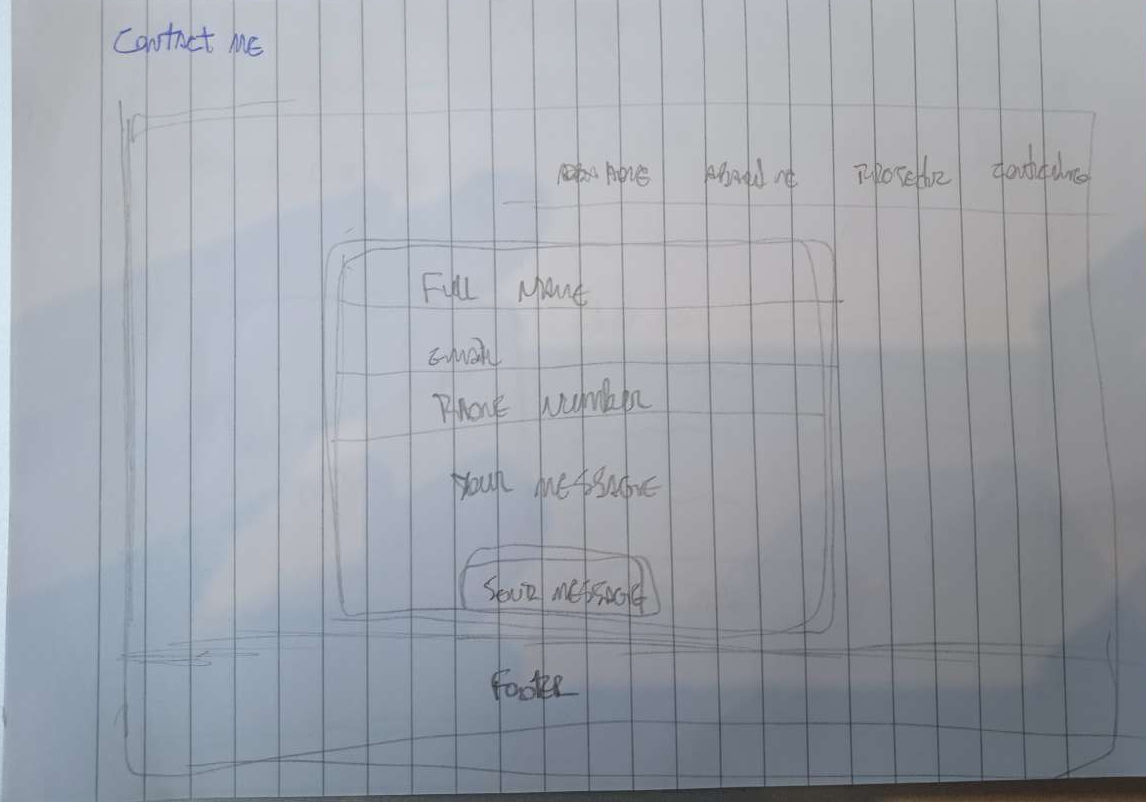 Contact ME
Home About me Projects Contact me
Full Name
Email
Phone Number
Your MESSAGE
Send MESSAGE
Footer